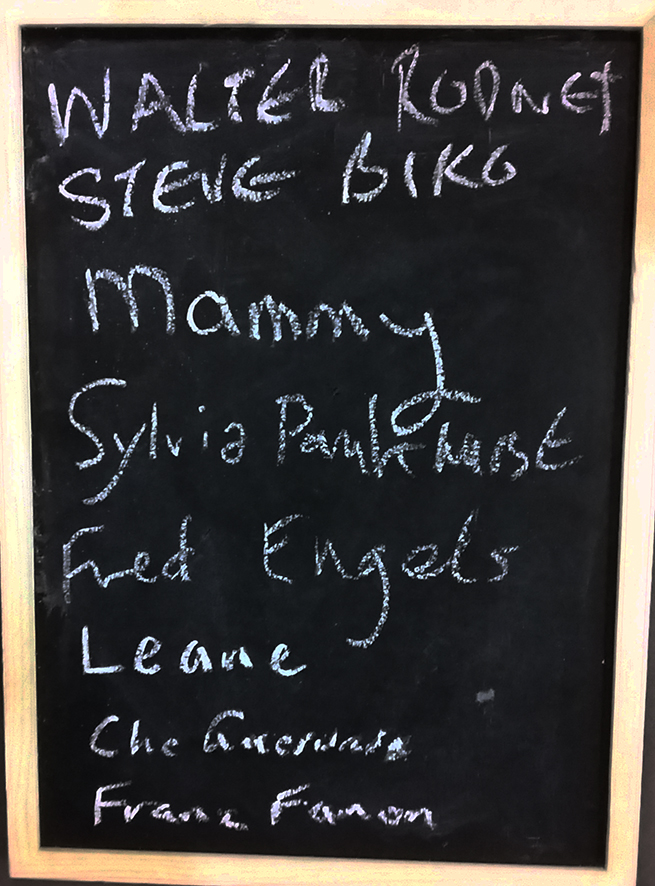 WALTER RODNEY
STEVE BIKO
Mammy
Sylvia Pankhurst
Fred Engels
Leane
Che Guervara
Franz Fanon